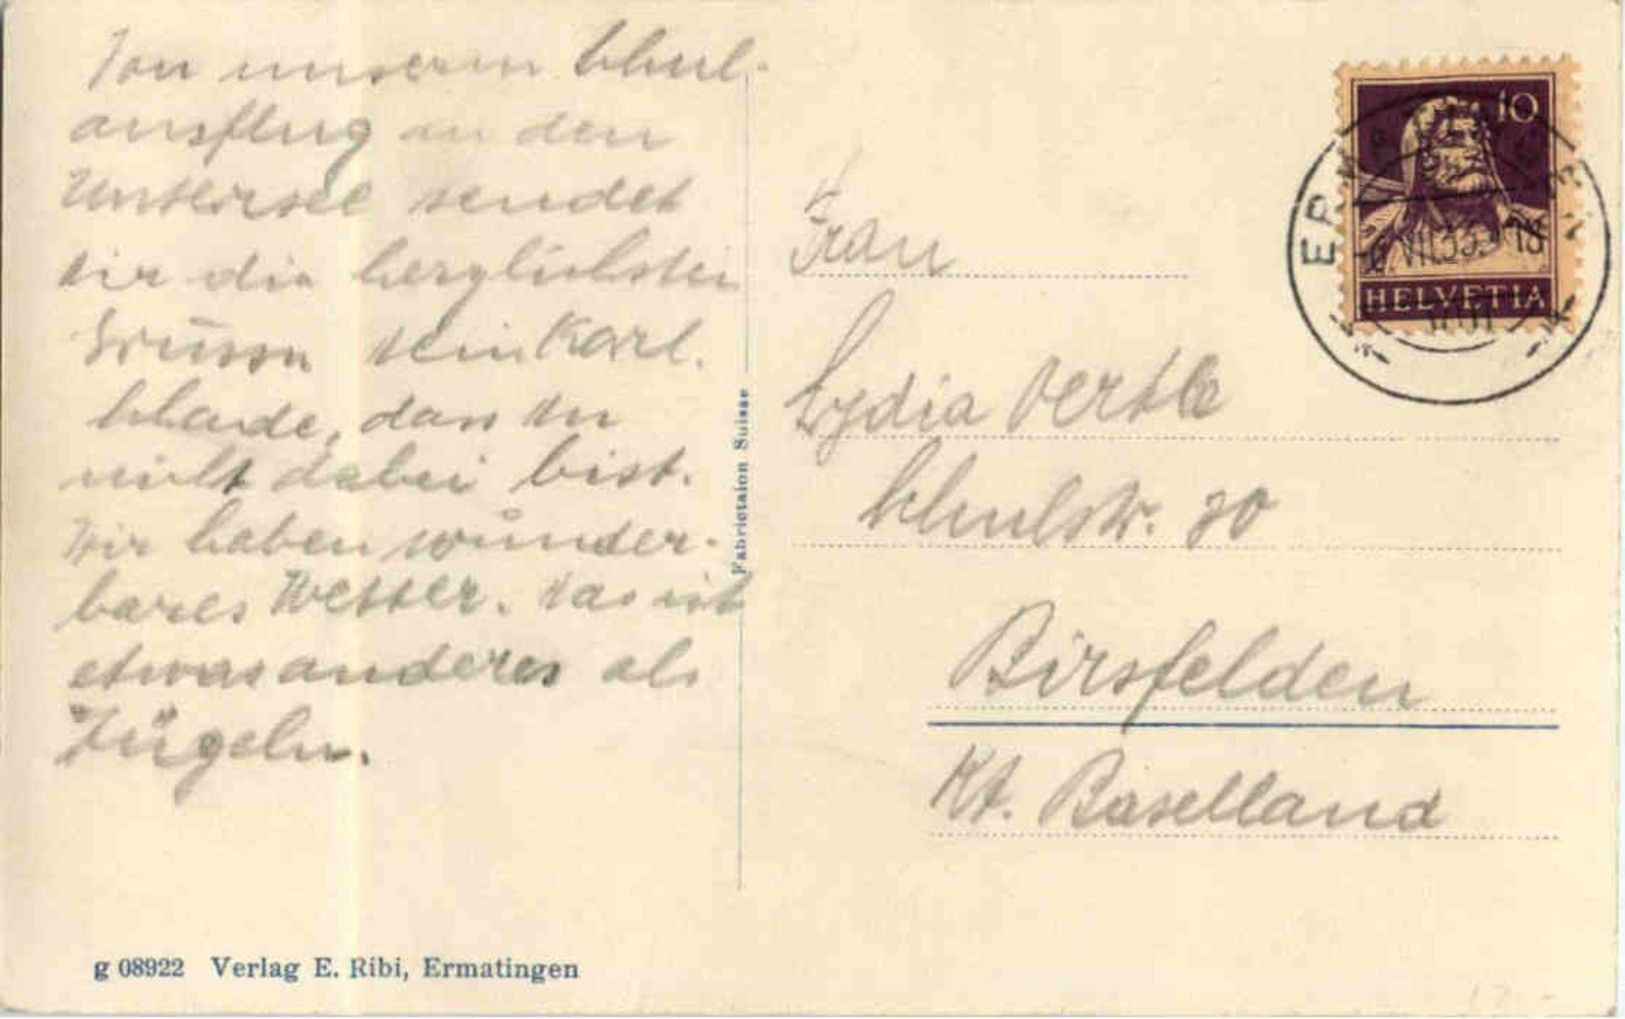 Von unserm Schul-
ausflug an den
Untersee sendet
dir die herzlichsten
Grüsse dein Karl.
Schade, dass du
nicht dabei bist.
Wir haben wunder-
bares Wetter. Das ist
etwas anderes als
Fabrictaion Suisse
g 08922 Verlag E. Ribi, Ermatingen
10
VII.33. 18
HELVETIA
Frau
Lydia Oertle
Schulstr. 20
Birsfelden
Kt. Baselland